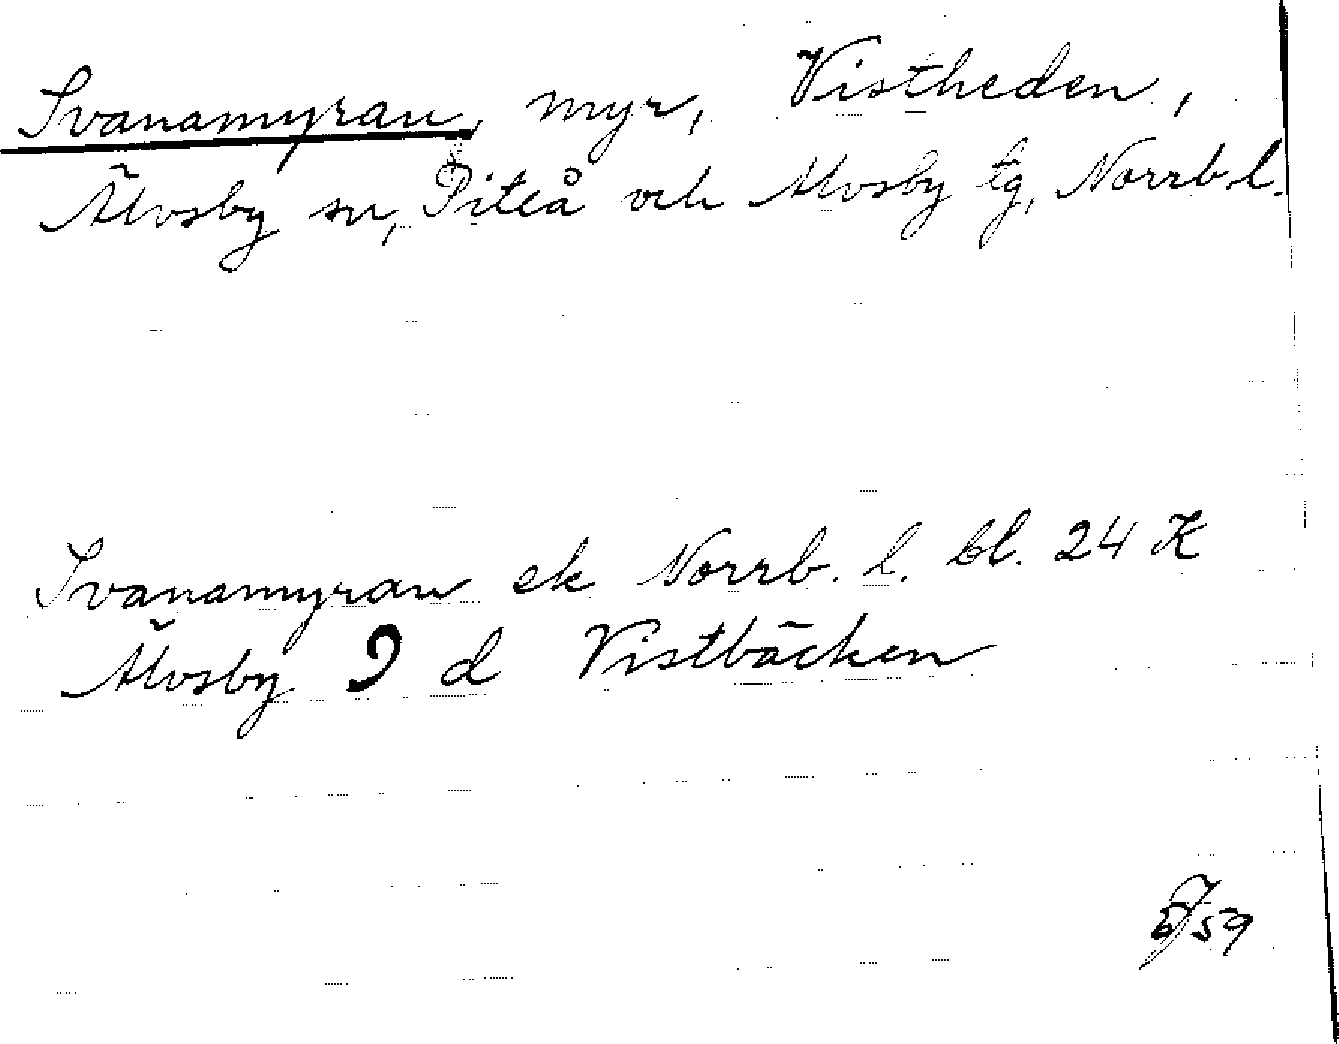 Svanamyran, myr, Vistheden,
Älvsby sn, Piteå och Älvsby tg, Norrb. l.
Svanamyran ek Norrb. l. bl. 24 K
Älvsby 9 d Vistbäcken